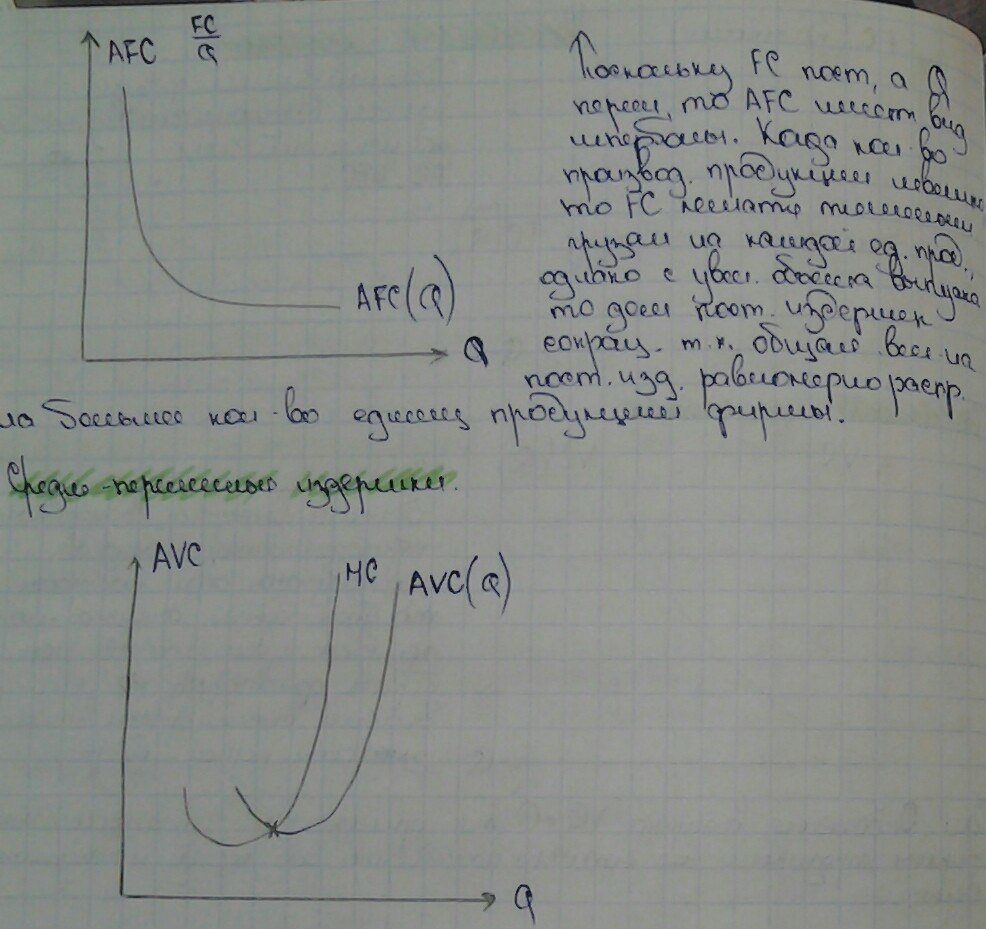 AFC FC/Q
AFC(Q)
Q
Поскольку FC пост, а Q
перем, то AFC имеет вид
гиперболы. Когда кол-во
производ. продукции невелико
то FC ложатся тяжелым
грузом на каждой ед. прод.,
однако с увел. объема выпуска
то доля пост. издержек
сокращ. т.к. общая вел-на
пост. изд. равномерно распр.
на большее кол-во единиц продукции фирмы.
Средне-переменные издержки.
AVC
MC
AVC(Q)
Q